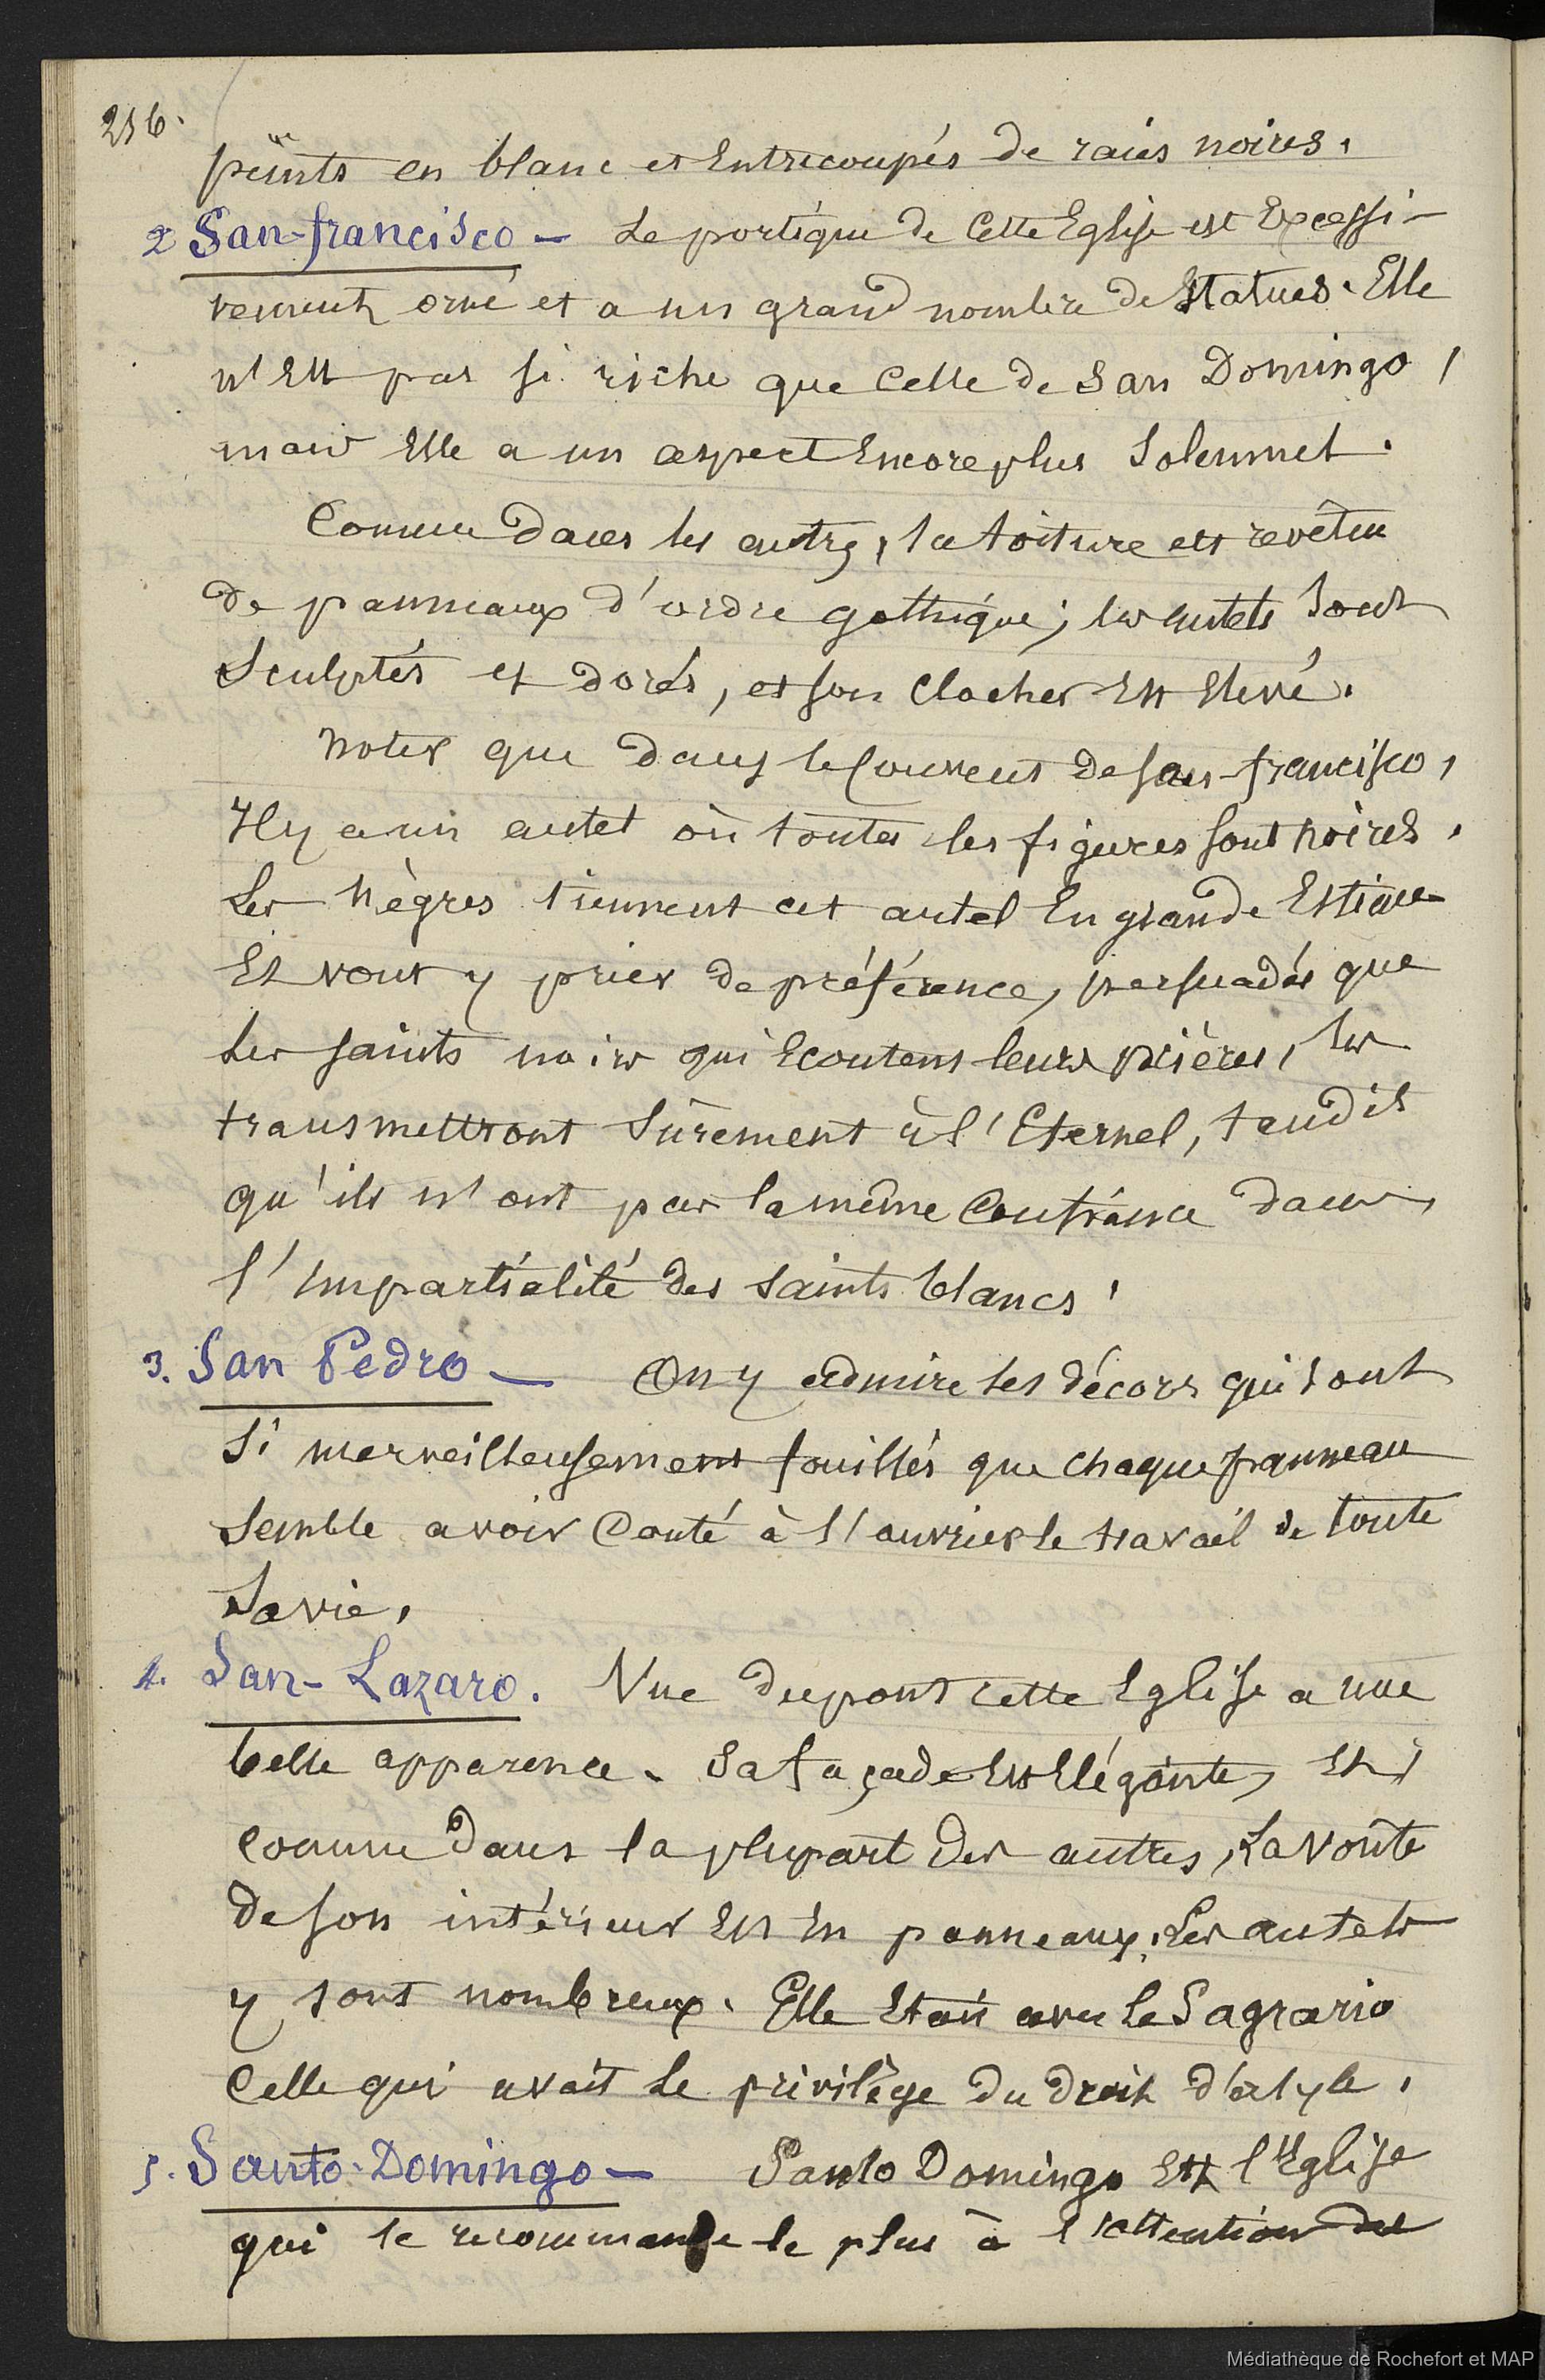 256.
peints en blanc et Entrecoupés de raies noires.
2 San-francisco — Le portique de Cette Eglise est Excessi-
vement orné et a un grand nombre de Statues. Elle
n'Est pas si riche que Celle de San Domingo,
mais Elle a un aspect Encore plus Solennel.
Comme Dans les autres, la toiture est revêtue
de panneaux d'ordre gothique; les autels sont
Sculptés et dorés, et son Clocher Est Elevé.
Noter que Dans le Couvent de San-francisco,
Il y a un autel où toutes les figures sont noires.
Les Nègres tiennent cet autel En grande Estime
Et vont y prier de préférence, persuadés que
les saints noirs qui Ecoutent leurs prières, les
transmettront Sûrement à l'Eternel, tandis
qu'ils n'ont pas la même Confiance dans
l'impartialité des saints blancs.
3. San Pedro — On y admire les décors qui sont
Si merveilleusement fouillés que chaque panneau
Semble avoir Couté à l'ouvrier le travail de toute
Sa vie.
4. San-Lazaro. Vue du pont cette Eglise a une
belle apparence. Sa façade Est Elégante, Et,
comme Dans la plupart des autres, La Voûte
de son intérieur Est En panneaux. Les autels
y sont nombreux. Elle Etait avec le Sagrario
Celle qui avait le privilège du Droit d'asyle.
5. Santo-Domingo — Santo Domingo Est l'Eglise
qui se recommande le plus à l'attention des
Médiathèque de Rochefort et MAP